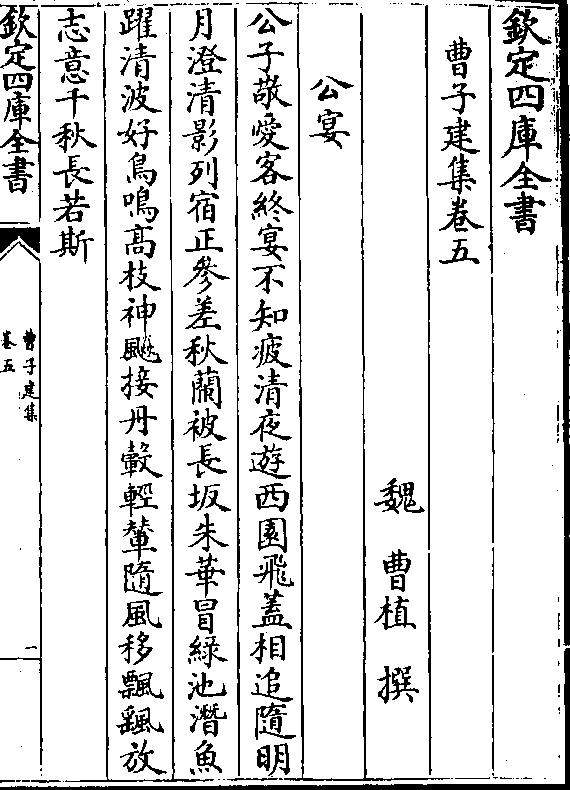 欽定四庫全書
曹子建集卷五
魏 曹植 撰
公宴
公子敬愛客終宴不知疲清夜遊西園飛蓋相追隨明
月澄清影列宿正參差秋蘭被長坂朱華冒綠池潛魚
躍清波好鳥鳴高枝神飈接丹轂輕輦隨風移飄颻放
志意千秋長若斯
欽定四庫全書
曹子建集
卷五
一